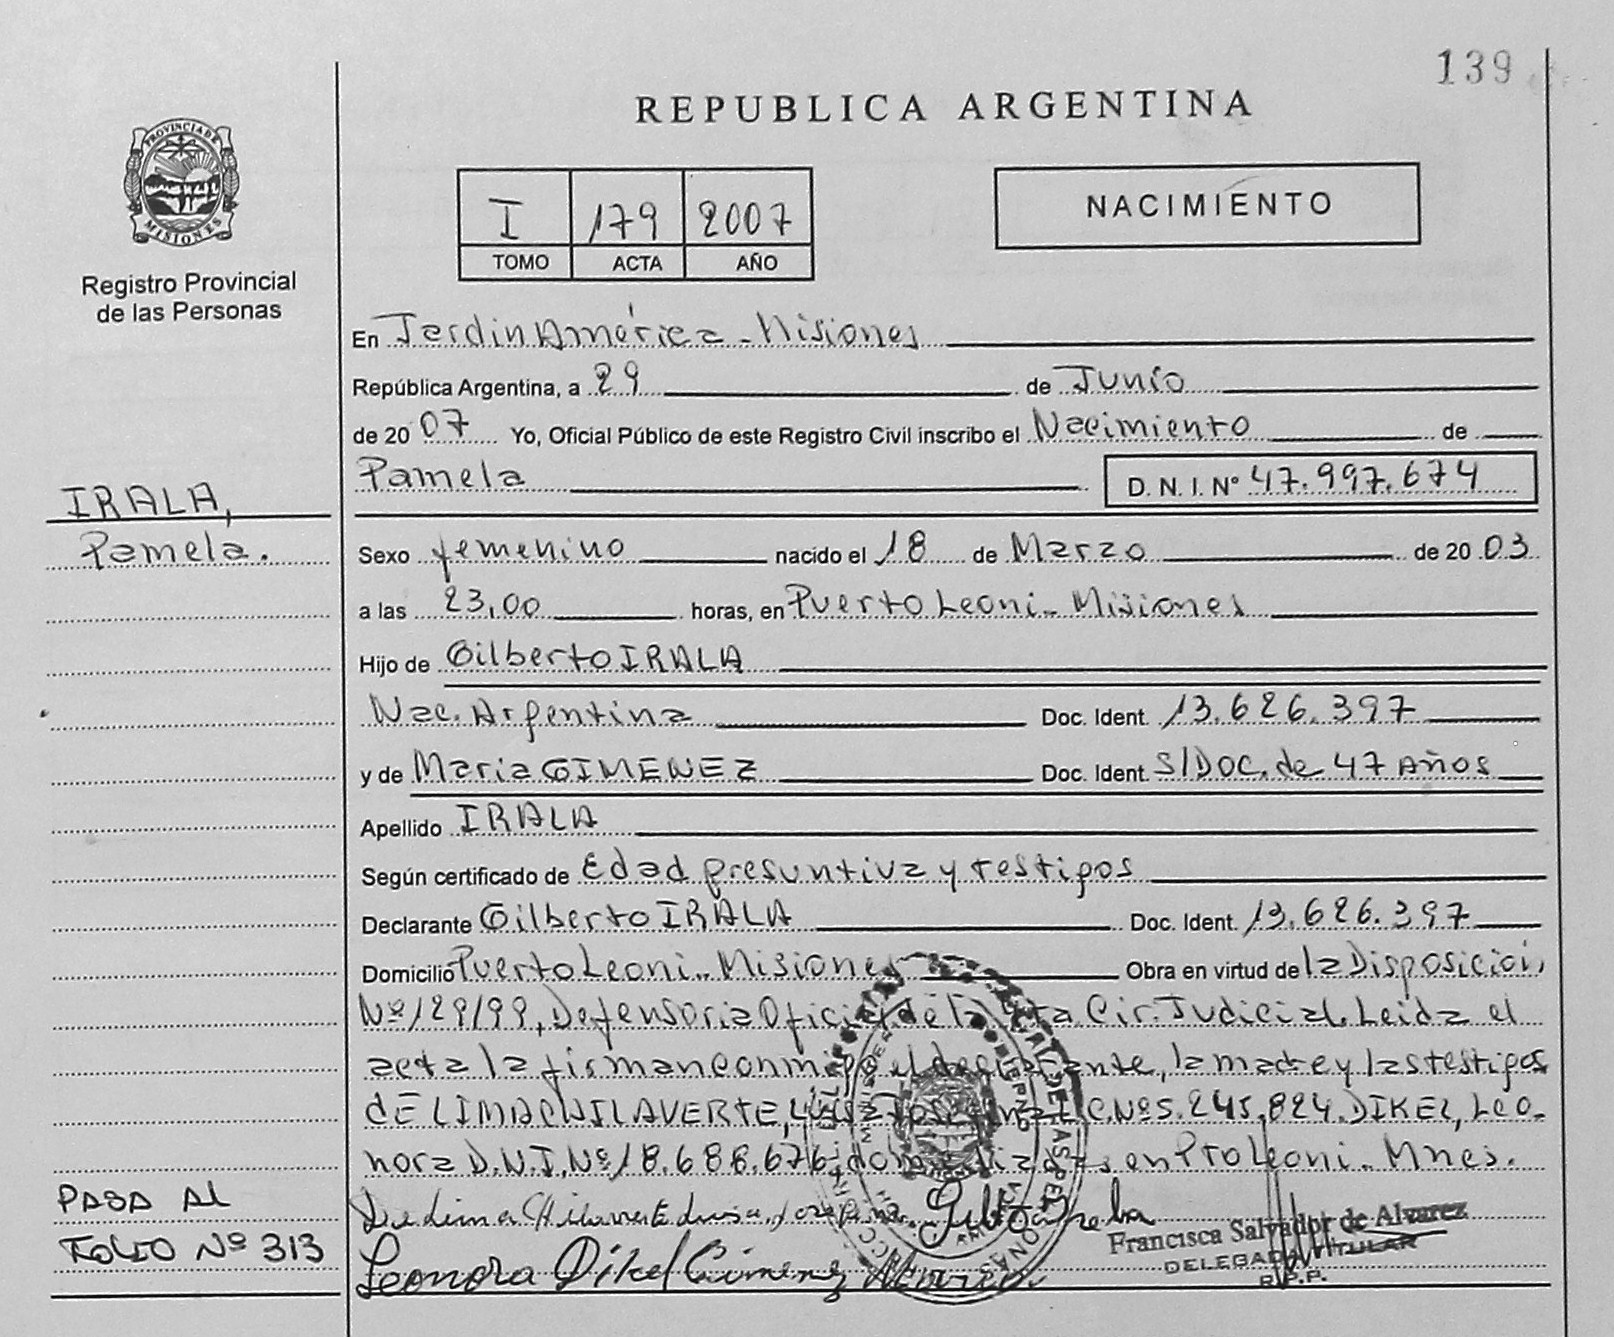 139
REPUBLICA ARGENTINA
PROVINCIA DE
MISIONES
Registro Provincial
de las Personas
I 179 2007
TOMO ACTA AÑO
NACIMIENTO
En Jardin América - Misiones
República Argentina, a 29 de Junio
de 2007 Yo, Oficial Público de este Registro Civil inscribo el Nacimiento de
Pamela D. N. I. Nº 47.997.674
IRALA,
Pamela.
Sexo femenino nacido el 18 de Marzo de 2003
a las 23,00 horas, en Puerto Leoni - Misiones
Hijo de Gilberto IRALA
Nac. Argentina Doc. Ident. 13.626.397
y de Maria GIMENEZ Doc. Ident. S/DOC. de 47 Años
Apellido IRALA
Según certificado de Edad presuntiva y testigos
Declarante Gilberto IRALA Doc. Ident. 13.626.397
Domicilio Puerto Leoni - Misiones Obra en virtud de la Disposición
Nº 129/99, Defensoria Oficial de la Cir. Judicial. Leida el
acta la firman conmigo el declarante, la madre y las testigos
DE LIMA CHILAVERTE, L.C. Nº 5.245.824. DIKEL, Leo-
nora D.N.I. Nº 18.688.676 domiciliadas en Pto Leoni - Mnes.
PASA AL
FOLIO Nº 313
Leonora Dikel Gimenez Maria
Francisca Salvador de Alvarez
DELEGADA TITULAR
R.P.P.